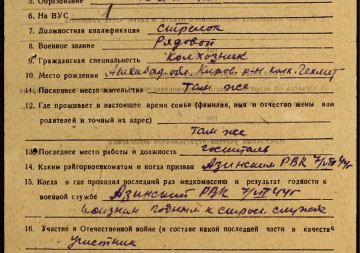 5. Образование
6. На ВУС 1
7. Должностная квалификация стрелок
8. Военное звание Рядовой
9. Гражданская специальность Колхозник
10. Место рождения Ашхабад. обл. Киров. р-н колх.
11. Последнее место жительства Там же
12. Где проживает в настоящее время семья (фамилия, имя и отчество жены или
родителей и точный их адрес)
там же
13. Последнее место работы и должность госпиталь
14. Каким райгорвоенкоматом и когда призван Азинским РВК
15. Когда и где проходил последний раз медкомиссию и результат годности к
военной службе Азинский РВК
признан годным к строев. службе
16. Участие в Отечественной войне (в составе какой последней части и в качестве
участник